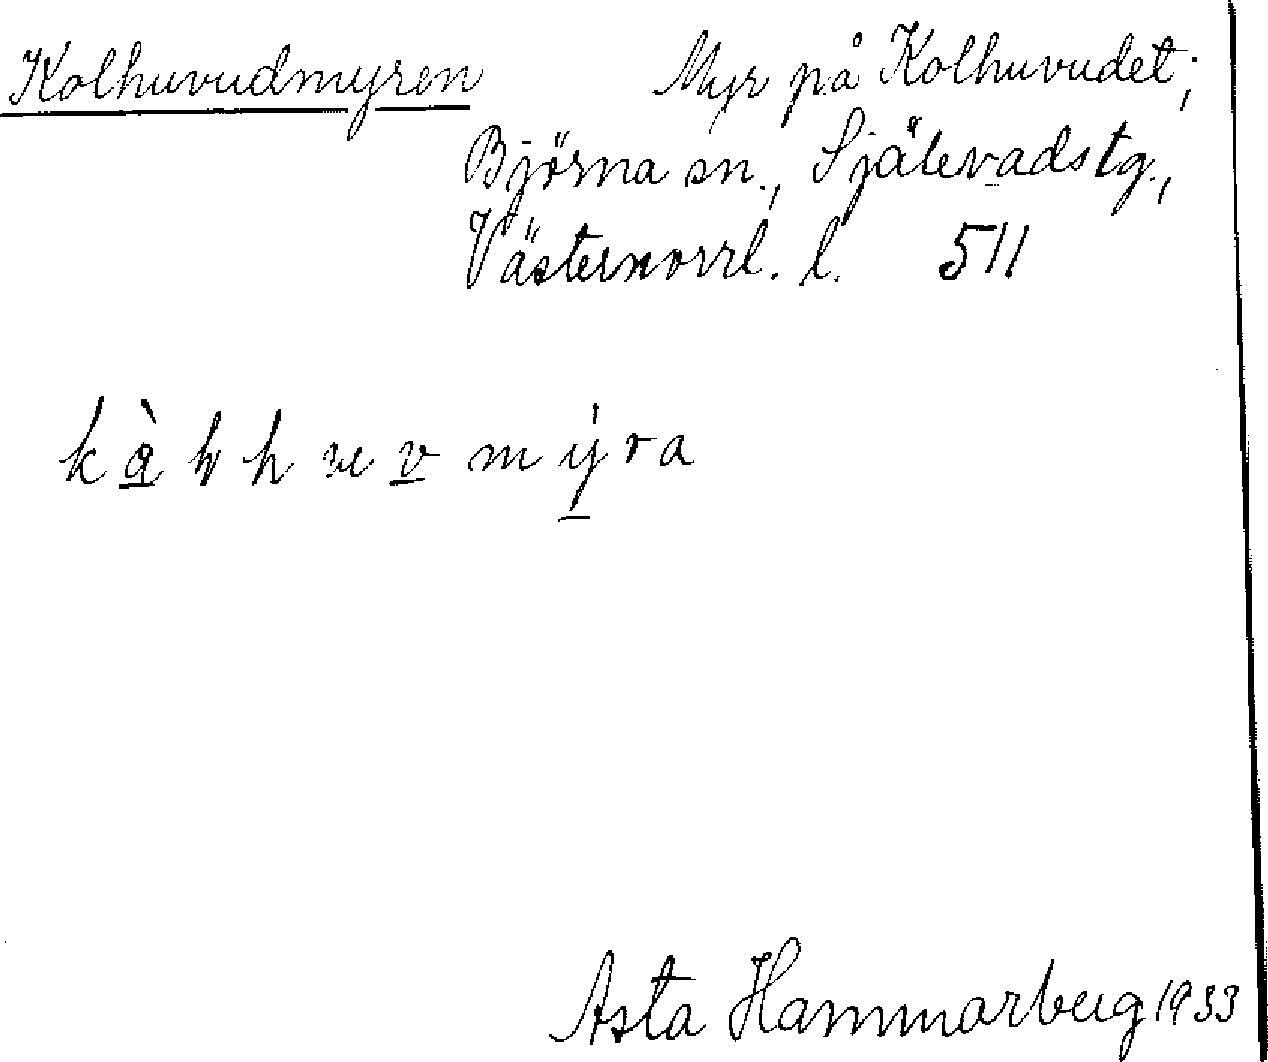 Kolhuvudmyren Myr på Kolhuvudet;
Björna sn., Själevads tg.,
Västernorrl. l. 511
Asta Hammarberg 1933